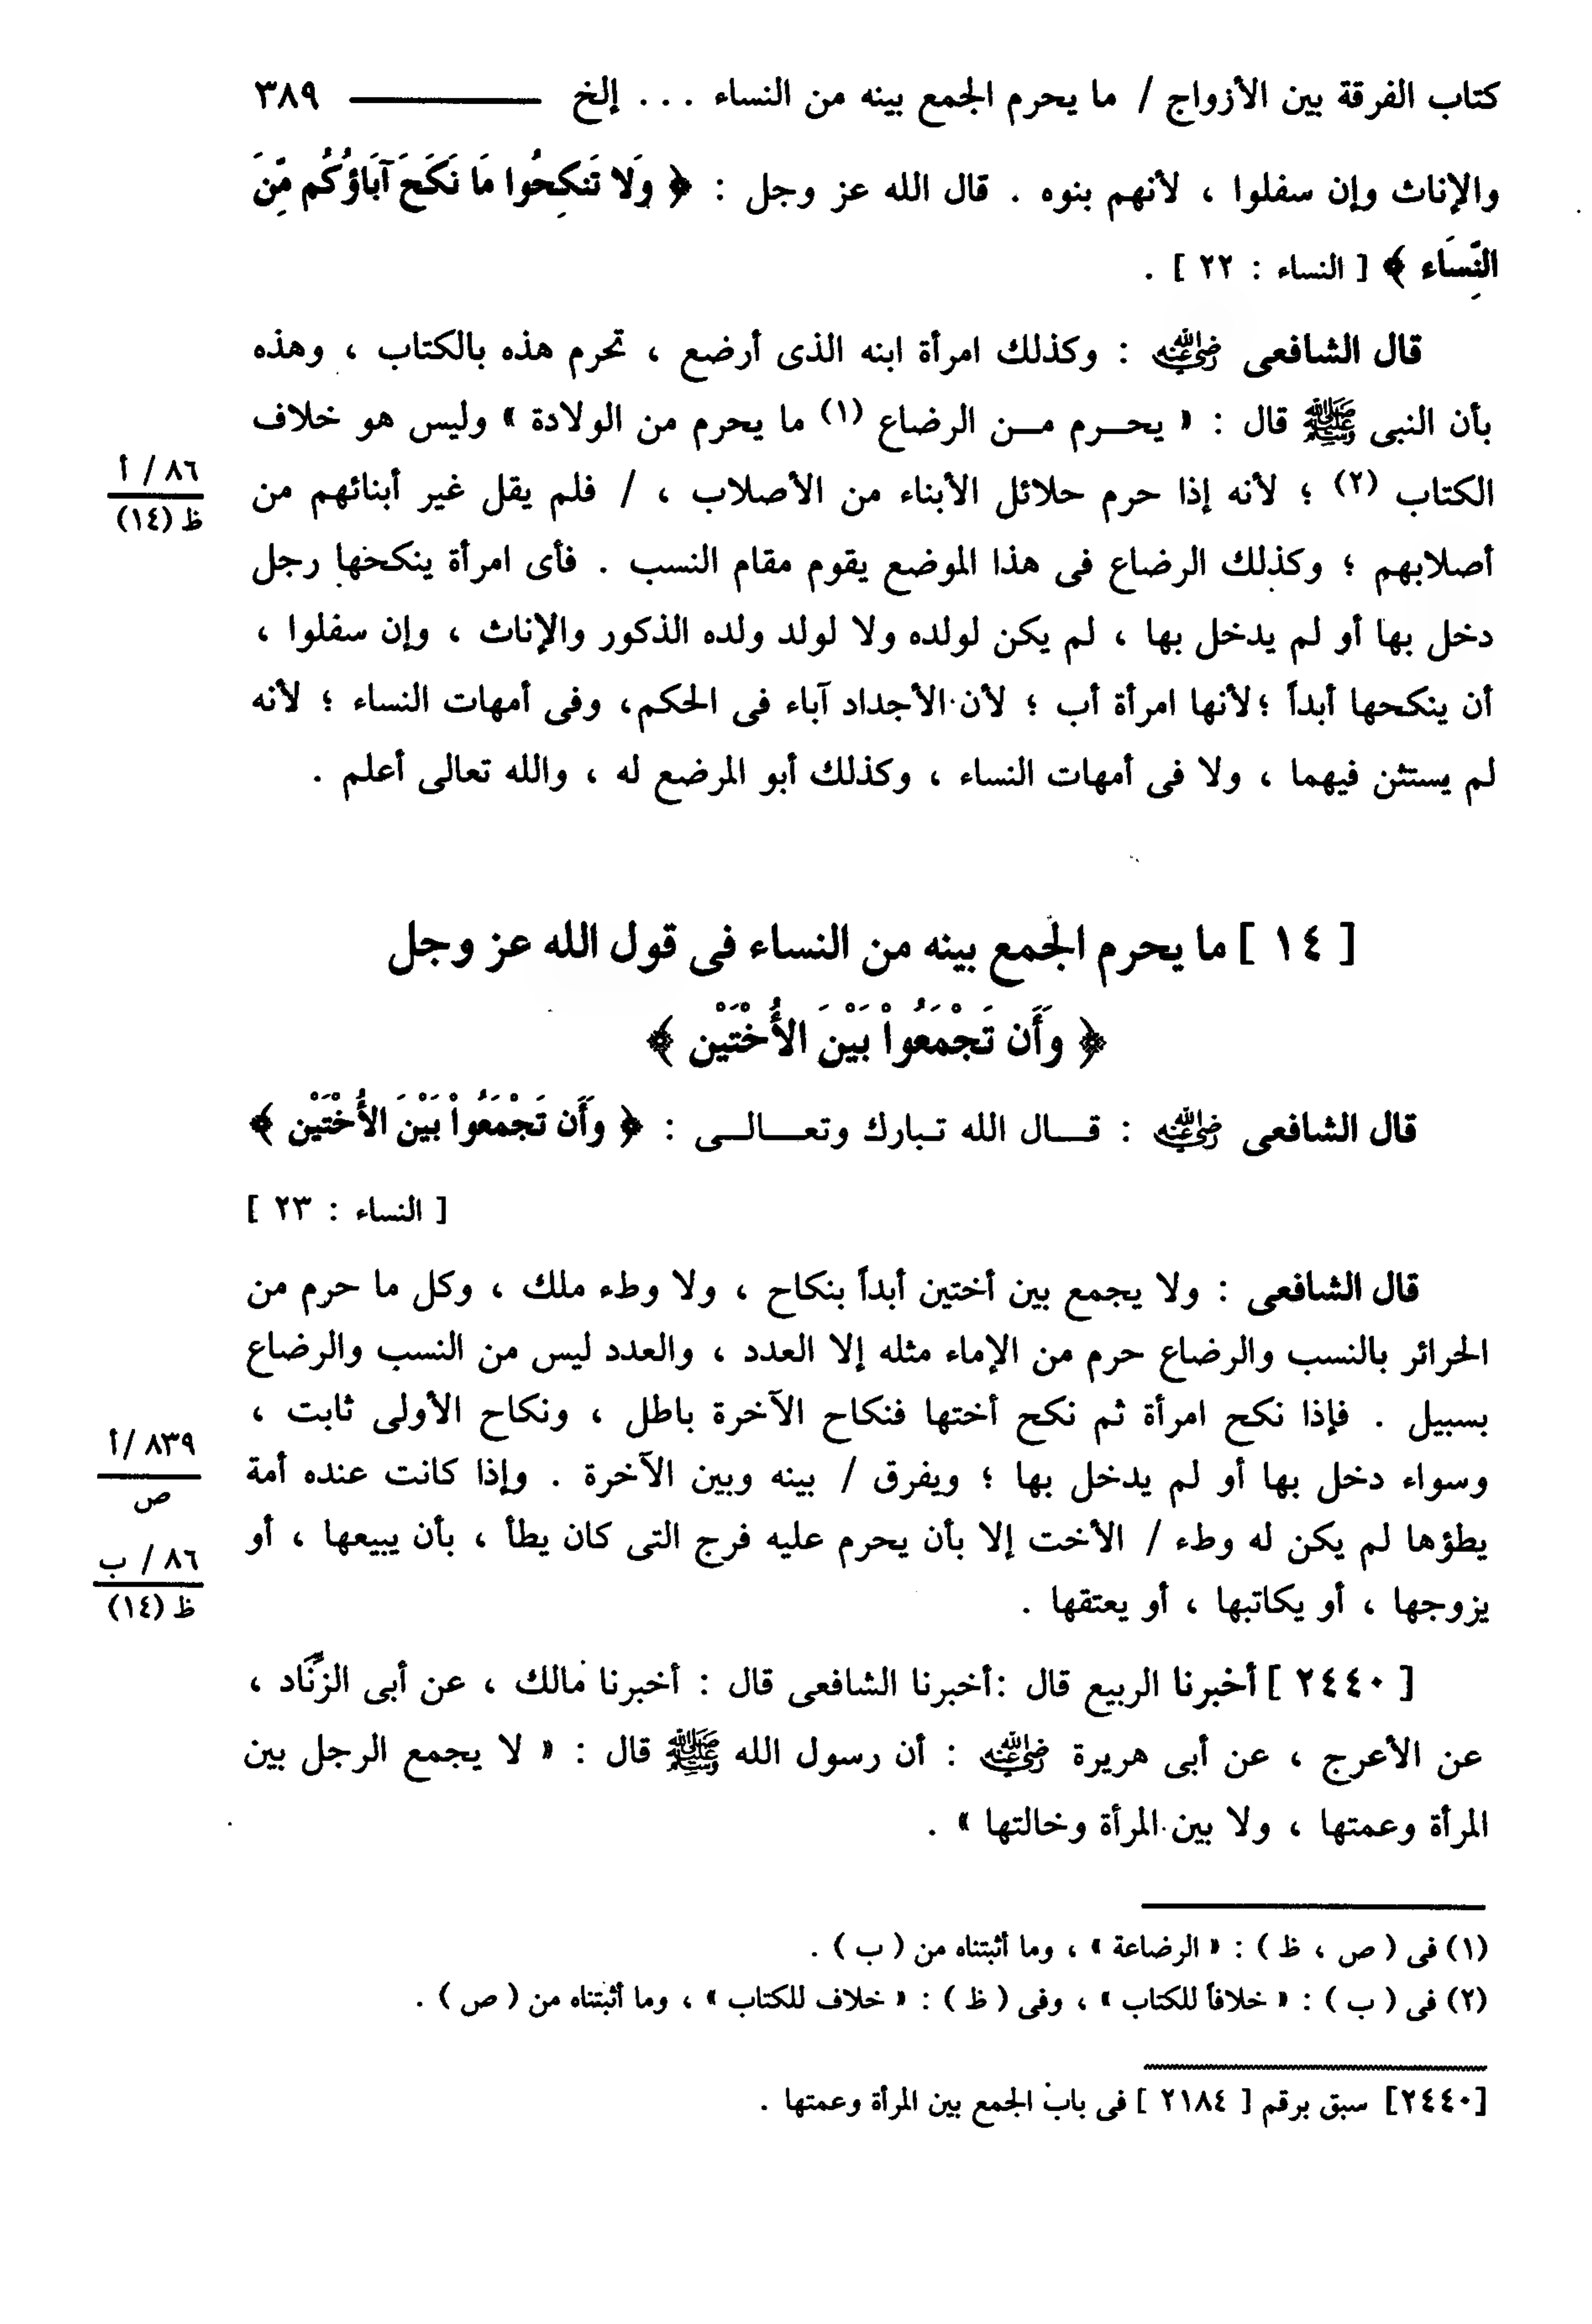 كتاب الفرقة بين الأزواج / ما يحرم الجمع بينه من النساء ... إلخ ـــــــ ٣٨٩
والإناث وإن سفلوا ، لأنهم بنوه . قال الله عز وجل : ﴿ وَلا تَنكِحُوا مَا نَكَحَ آبَاؤُكُم مِّنَ
النِّسَاء ﴾ [ النساء : ٢٢ ] .
قال الشافعى رضي الله عنه : وكذلك امرأة ابنه الذى أرضع ، تحرم هذه بالكتاب ، وهذه
بأن النبى ﷺ قال : « يحـــرم مـــن الرضاع (١) ما يحرم من الولادة » وليس هو خلاف
الكتاب (٢) ؛ لأنه إذا حرم حلائل الأبناء من الأصلاب ، / فلم يقل غير أبنائهم من
٨٦ / أ
ظ (١٤)
أصلابهم ؛ وكذلك الرضاع فى هذا الموضع يقوم مقام النسب . فأى امرأة ينكحها رجل
دخل بها أو لم يدخل بها ، لم يكن لولده ولا لولد ولده الذكور والإناث ، وإن سفلوا ،
أن ينكحها أبداً ؛ لأنها امرأة أب ؛ لأن الأجداد آباء فى الحكم، وفى أمهات النساء ؛ لأنه
لم يستثن فيهما ، ولا فى أمهات النساء ، وكذلك أبو المرضع له ، والله تعالى أعلم .
[ ١٤ ] ما يحرم الجمع بينه من النساء فى قول الله عز وجل
﴿ وَأَن تَجْمَعُواْ بَيْنَ الأُخْتَيْن ﴾
قال الشافعى رضي الله عنه : قـــال الله تـبارك وتعـــالـــى : ﴿ وَأَن تَجْمَعُواْ بَيْنَ الأُخْتَيْن ﴾
[ النساء : ٢٣ ]
قال الشافعى : ولا يجمع بين أختين أبداً بنكاح ، ولا وطء ملك ، وكل ما حرم من
الحرائر بالنسب والرضاع حرم من الإماء مثله إلا العدد ، والعدد ليس من النسب والرضاع
بسبيل . فإذا نكح امرأة ثم نكح أختها فنكاح الآخرة باطل ، ونكاح الأولى ثابت ،
وسواء دخل بها أو لم يدخل بها ؛ ويفرق / بينه وبين الآخرة . وإذا كانت عنده أمة
٨٣٩ /أ
ص
يطؤها لم يكن له وطء / الأخت إلا بأن يحرم عليه فرج التى كان يطأ ، بأن يبيعها ، أو
٨٦ / ب
ظ (١٤)
يزوجها ، أو يكاتبها ، أو يعتقها .
[ ٢٤٤٠ ] أخبرنا الربيع قال :أخبرنا الشافعى قال : أخبرنا مالك ، عن أبى الزِّنَاد ،
عن الأعرج ، عن أبى هريرة رضي الله عنه : أن رسول الله ﷺ قال : « لا يجمع الرجل بين
المرأة وعمتها ، ولا بين المرأة وخالتها » .
(١) فى ( ص ، ظ ) : « الرضاعة » ، وما أثبتناه من ( ب ) .
(٢) فى ( ب ) : « خلافاً للكتاب » ، وفى ( ظ ) : « خلاف للكتاب » ، وما أثبتناه من ( ص ) .
[٢٤٤٠] سبق برقم [ ٢١٨٤ ] فى باب الجمع بين المرأة وعمتها .